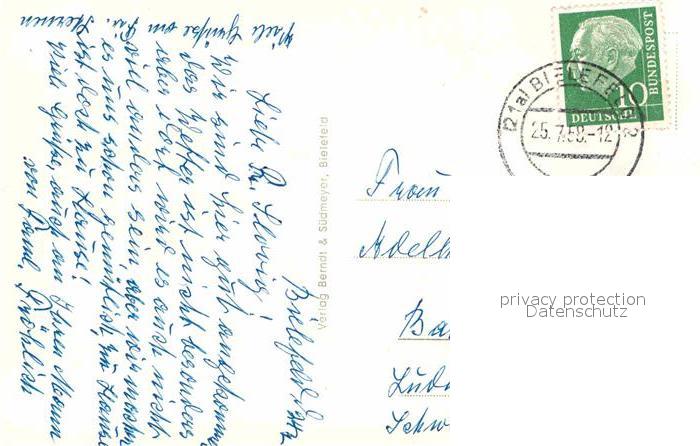 Bielefeld, d. 24.7.
Liebe
Wir sind hier gut angekommen
das Wetter ist nicht besonders
aber dort wird es auch nicht
viel anders sein, aber wir machen
es uns schon gemütlich, zu Hause
ist doch zu Hause!
Viele Grüße, auch an Ihren Mann
von Fröhlich
Viele Grüße an
Verlag Berndt & Südmeyer, Bielefeld
DEUTSCHE BUNDESPOST
10
(21a) BIELEFELD 2
25.7.58.-12
Frau
Adelh
Ba
Lüde
Schw
privacy protection
Datenschutz